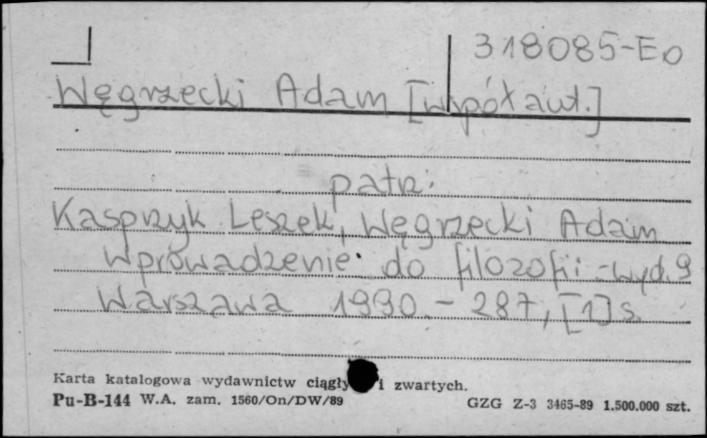 318085-Eo
Węgrzecki Adam [współaut.]
patrz:
Kasprzyk Leszek, Węgrzecki Adam
Wprowadzenie do filozofii - wyd. 9
Warszawa 1990. - 287, [1] s.
Karta katalogowa wydawnictw ciągły i zwartych.
Pu-B-144 W.A. zam. 1560/On/DW/89 GZG Z-3 3465-89 1.500.000 szt.